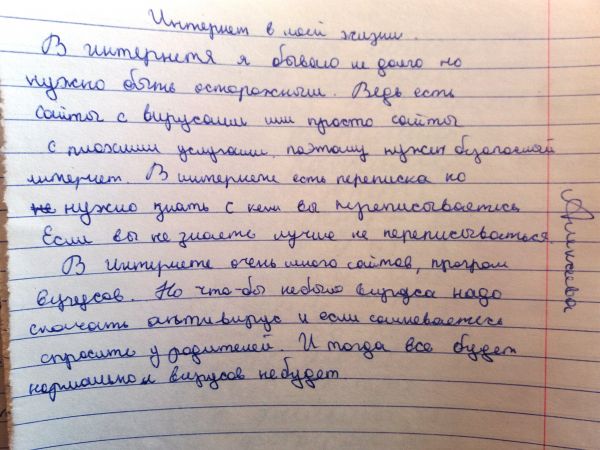 Интернет в моей жизни.
В интернетя я бываю не долго но
нужно быть осторожным. Ведь есть
сайты с вирусами или просто сайты
с плохими услугами, поэтому нужен безопасный
интернет. В интернете есть переписка но
не нужно знать с кем вы переписываетесь
Если вы не знаете лучше не переписываться.
В Интернете очень много сайтов, програм
вирусов. Но что-бы небыло вируса надо
скачать антивирус и если сомневаетесь
спросите у родителей. И тогда все будет
нормально и вирусов небудет
Алексеева